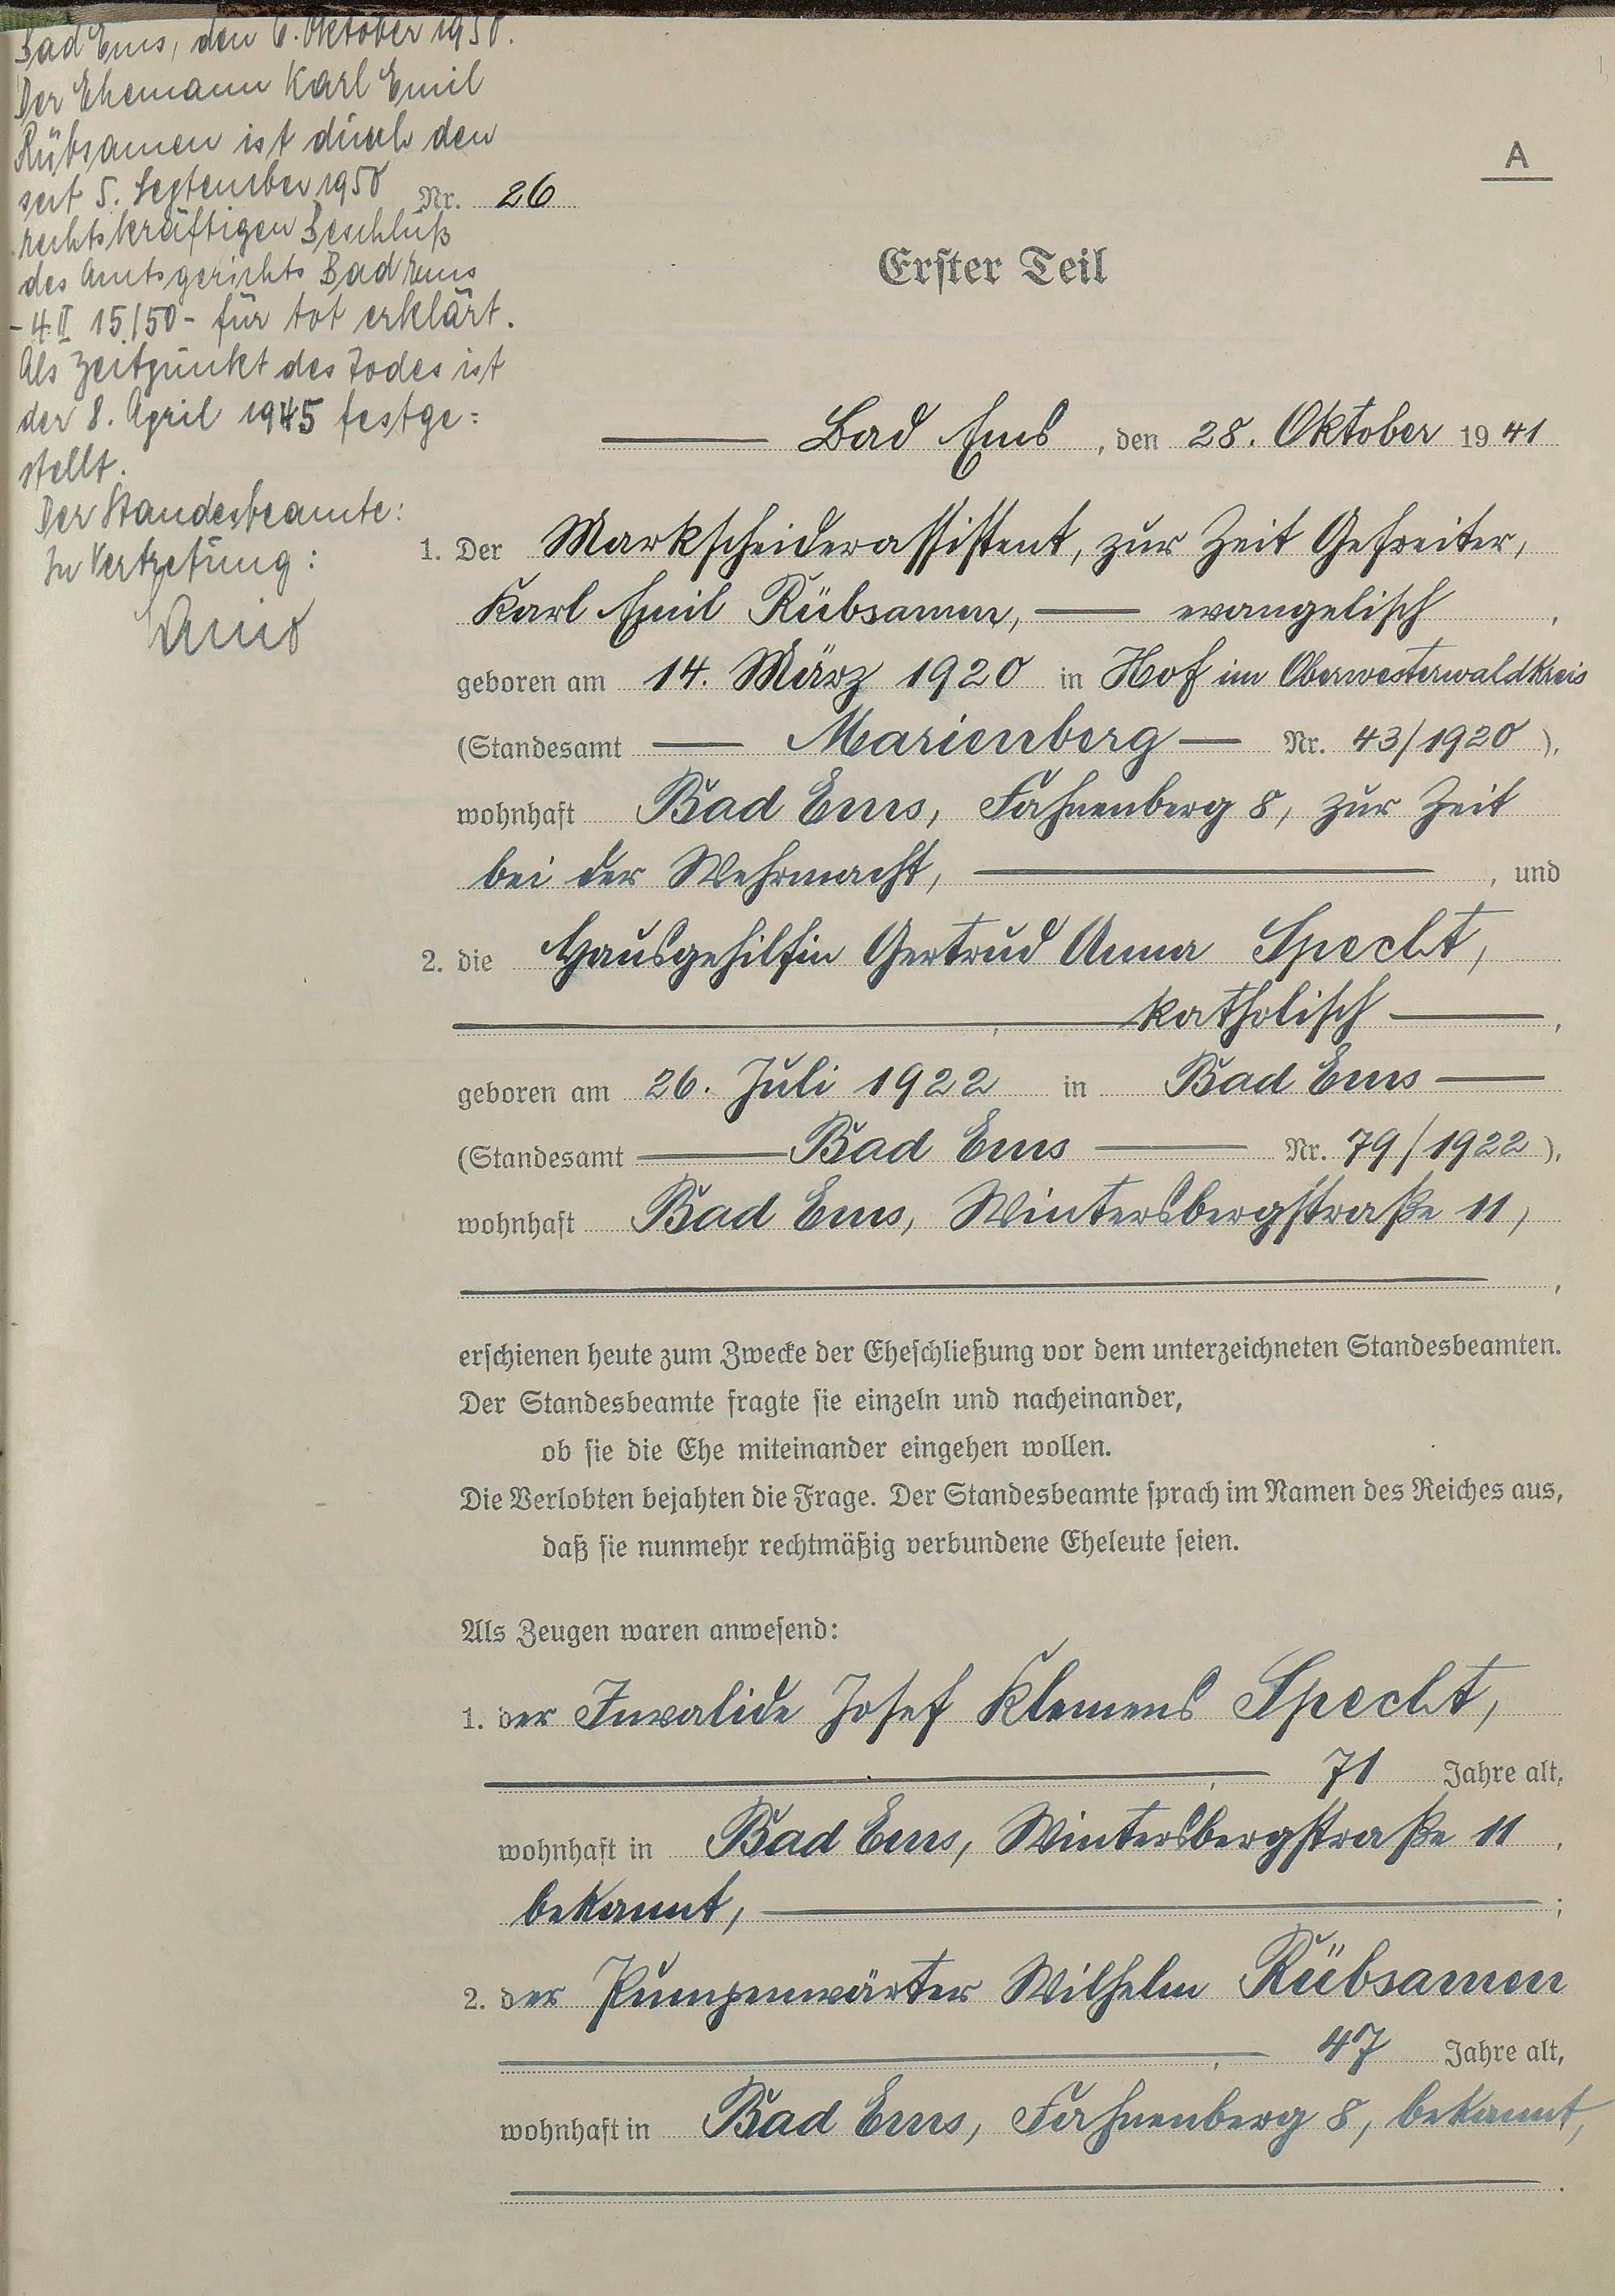 Bad Ems, den 6. Oktober 1950.
Der Ehemann Karl Emil
Rübsamen ist durch den
seit 5. September 1950
rechtskräftigen Beschluß
des Amtsgerichts Bad Ems
- 4. II 15/50 - für tot erklärt.
Als Zeitpunkt des Todes ist
der 8. April 1945 festge=
stellt.
Der Standesbeamte:
In Vertretung:
A
Nr. 26
Erster Teil
Bad Ems, den 28. Oktober 1941
1. Der Markscheiderassistent, zur Zeit Gefreiter,
Karl Emil Rübsamen, evangelisch,
geboren am 14. März 1920 in Hof im Oberwesterwaldkreis
(Standesamt Marienberg Nr. 43/1920),
wohnhaft Bad Ems, Fahnenberg 8, zur Zeit
bei der Wehrmacht, , und
2. die Hausgehilfin Gertrud Anna Specht,
katholisch,
geboren am 26. Juli 1922 in Bad Ems
(Standesamt Bad Ems Nr. 79/1922),
wohnhaft Bad Ems, Wintersbergstraße 11,
erschienen heute zum Zwecke der Eheschließung vor dem unterzeichneten Standesbeamten.
Der Standesbeamte fragte sie einzeln und nacheinander,
ob sie die Ehe miteinander eingehen wollen.
Die Verlobten bejahten die Frage. Der Standesbeamte sprach im Namen des Reiches aus,
daß sie nunmehr rechtmäßig verbundene Eheleute seien.
Als Zeugen waren anwesend:
1. der Invalide Josef Klemens Specht,
71 Jahre alt,
wohnhaft in Bad Ems, Wintersbergstraße 11,
bekannt, ;
2. der Pumpenwärter Wilhelm Rübsamen
, 47 Jahre alt,
wohnhaft in Bad Ems, Fahnenberg 8, bekannt,